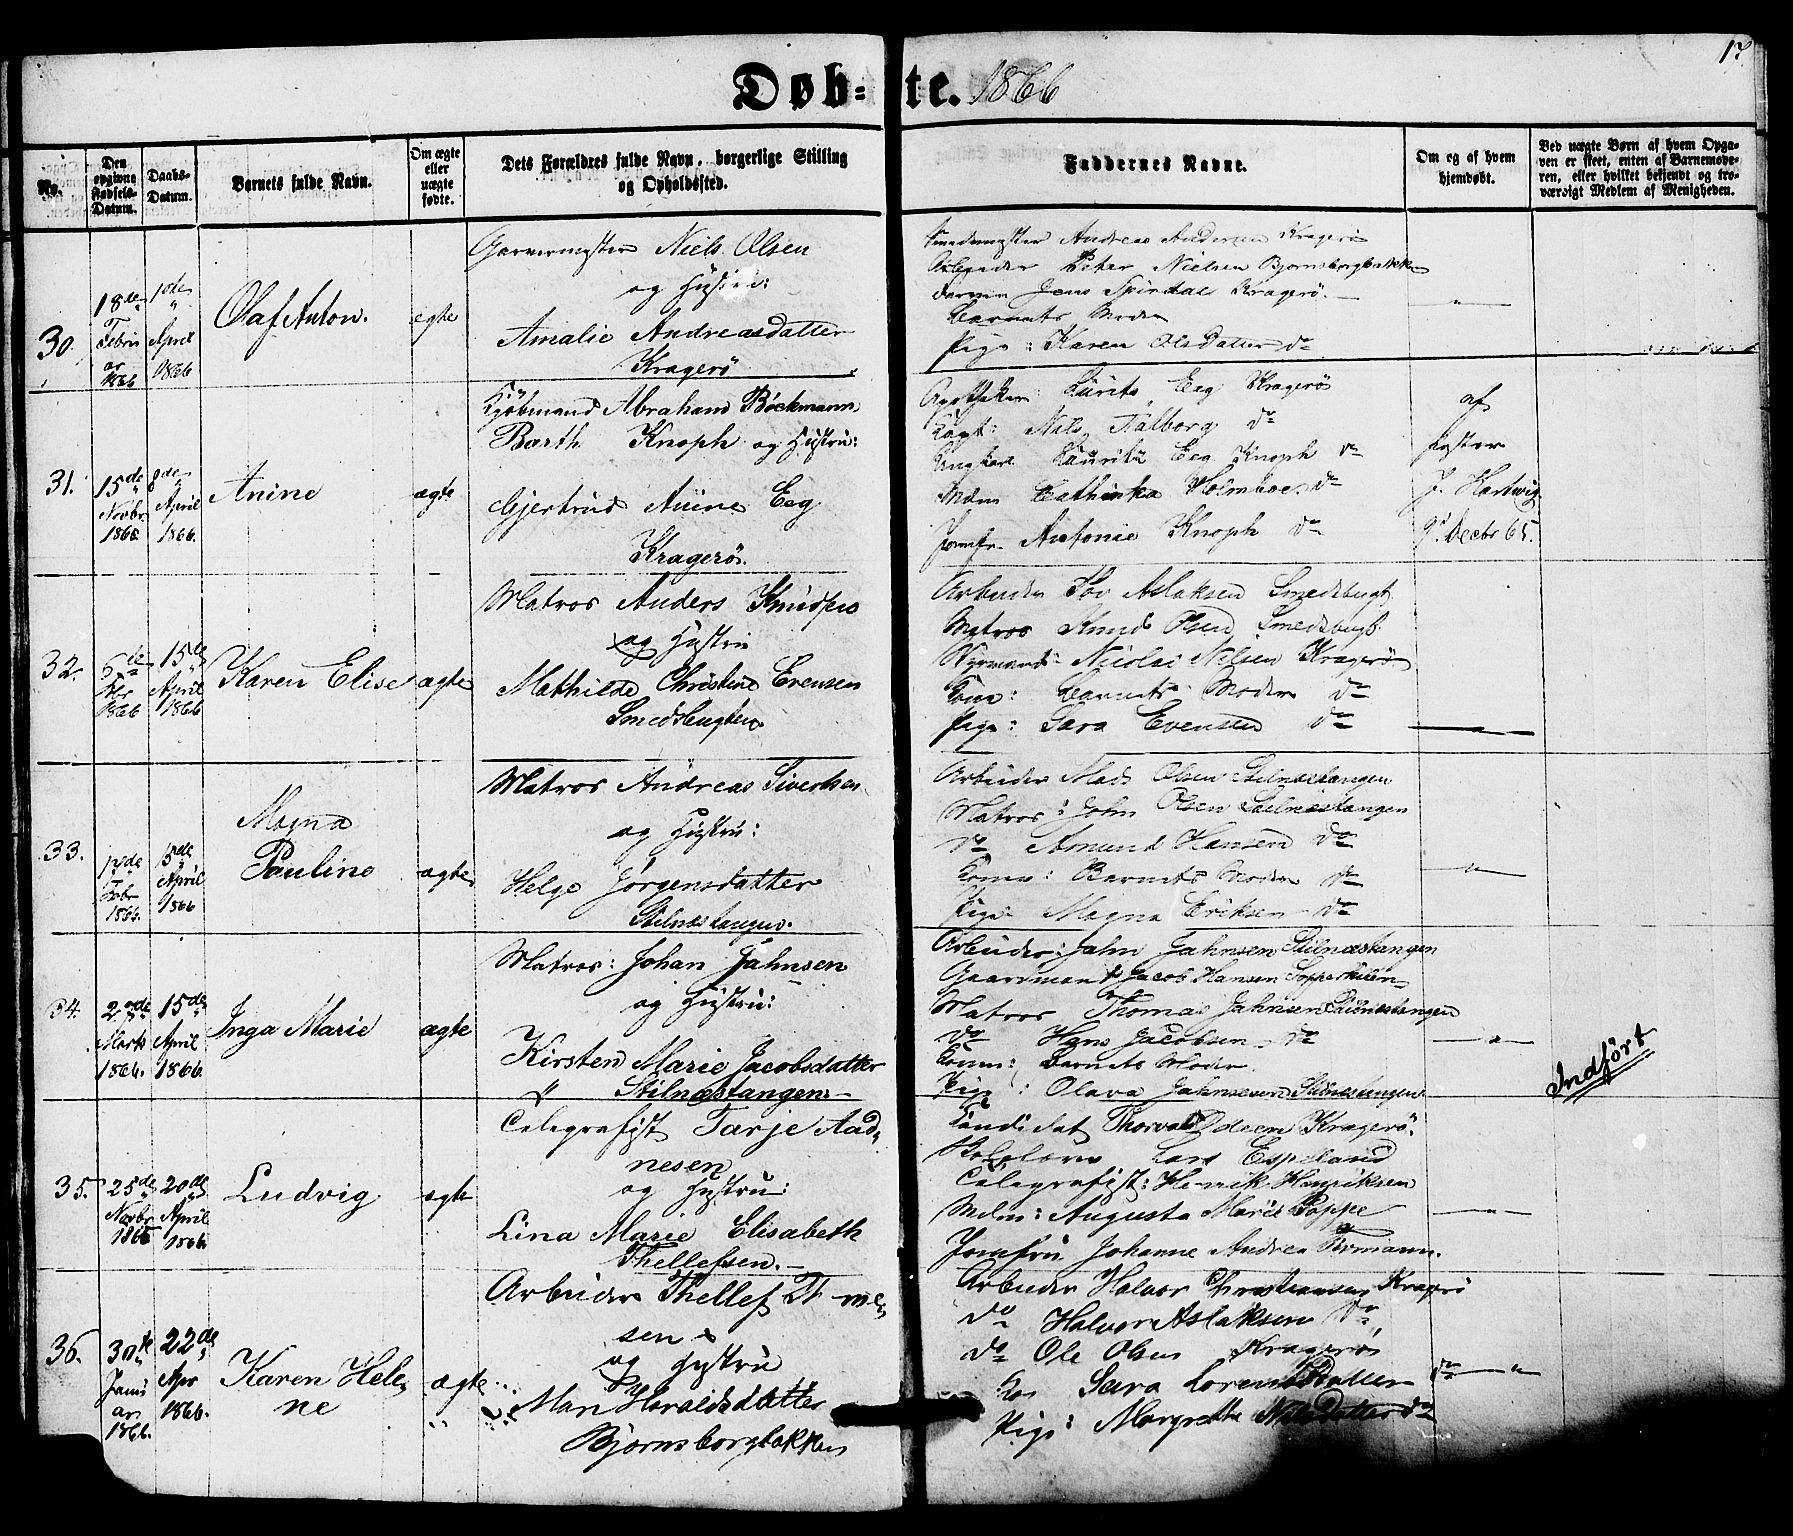 17
Døb= te. 1866
No.
Den opgivne Fødsels-Datum.
Daabs-Datum.
Barnets fulde Navn.
Om ægte eller uægte fødte.
Dets Forældres fulde Navn, borgerlige Stilling og Opholdssted.
Faddernes Navne.
Om og af hvem hjemdøbt.
Ved uægte Børn af hvem Opgaven er skeet, enten af Barnemoderen, eller hvilket bekjendt og troværdigt Medlem af Menigheden.
30.
18de Februar 1866
April 1866
Olaf Anton.
ægte
Garvermester Niels Olsen
og Hustru:
Amalie Andreasdatter
Kragerö
Smedemester Andreas Andersen Kragerö
Arbeider Peter Nielsen Bjornsborgbakken
Jens Kragerö.
Barnets Moder
Pige: Karen Olsdatter do
31.
15de Novbr 1865
8de April 1866.
Anine
ægte
Kjöbmand Abraham Böckmann
Barth Knoph og Hustru:
Gjertrud Anine Eeg
Kragerö.
Apotheker: Lurits Eeg Kragerö
Capt: Nils Falborg do
Ungkarl Lauritz Eeg Knoph do
Mdm Cathinka Holmboe do
Jomfr. Antonie Knoph do
af
Pastor
J. Hartwig
9d Decbr 65.
32.
5te 1866
15de April 1866
Karen Elise
ægte
Matros Anders Knudsen
og Hustru
Mathilde Christine Evensen
Smedsbugten
Arbeider Tov Aslaksen Smedsbugt.
Matros Knud Olsen Smedsbugt.
Styrmand: Nicolai Nilsen Kragerö
Kone: Barnets Moder do
Pige: Sara Evensen do
33.
Febr 1866.
15de April 1866
Magna
Pauline
ægte
Matros Andreas Sivertsen
og Hustru:
Helge Jörgensdatter
Stilnæstangen.
Arbeider Mads Olsen Stilnæstangen
Matros: John Olsen Stilnæstangen
do Amund Hansen do
Kone: Barnets Moder do
Pige Magna Eriksen do
34.
2de Marts 1866.
15de April 1866.
Inga Marie
ægte
Matros: Johan Jahnsen
og Hustru:
Kirsten Marie Jacobsdatter
Stilnæstangen.
Arbeider: Jahn Jahnsen Stilnæstangen
Gaardmand Jacob Hansen
Matros Thomas Jahnsen Stilnæstangen
do Hans Jacobsen do
Kone: Barnets Moder.
Pige: Olava Jahnsen Stilnæstangen
Indfört
35.
25de Novbr 1865
20de April 1866.
Ludvig
ægte
Telegrafist Tarje Aad-
nesen
og Hustru:
Lina Marie Elisabeth
Thellefsen.
Kandidat Thorvald Kragerö.
Lars Espeland
Telegrafist: Henrik Henriksen
Mdm: Augusta Marie Poppe
Jomfru Johanne Andrea
36.
30te Januar 1866.
22de Apr 1866.
Karen Hele-
ne
ægte
Arbeider Thellef
sen
og Hustru
Mari Haraldsdatter
Bjornsborgbakken
Arbeider Halvor Christiansen Kragerö
do Halvor Aslaksen do
do Ole Olsen Kragerö
Sara Lorentsdatter do
Pige: Margrethe Nilsdatter do